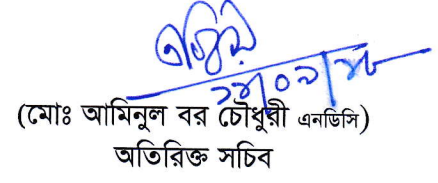 (মোঃ আমিনুল বর চৌধুরী এনডিসি)
অতিরিক্ত সচিব